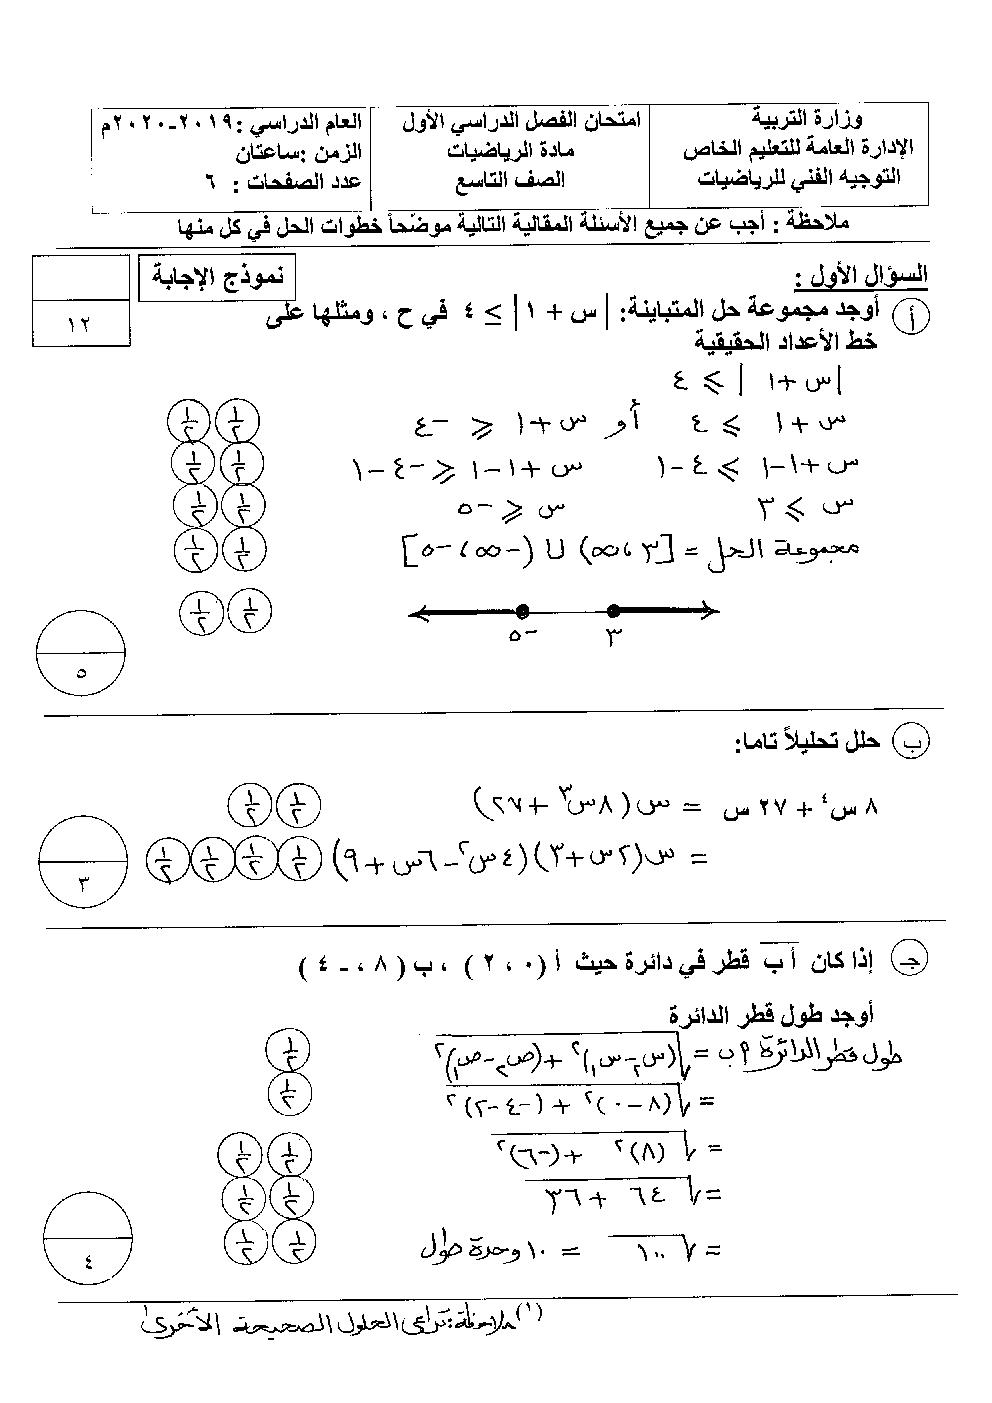 وزارة التربية
الإدارة العامة للتعليم الخاص
التوجيه الفني للرياضيات
امتحان الفصل الدراسي الأول
مادة الرياضيات
الصف التاسع
العام الدراسي :٢٠١٩-٢٠٢٠م
الزمن :ساعتان
عدد الصفحات : ٦
ملاحظة : أجب عن جميع الأسئلة المقالية التالية موضحاً خطوات الحل في كل منها
السؤال الأول :
نموذج الإجابة
١٢
أ أوجد مجموعة حل المتباينة: | س + ١ | ≥ ٤ في ح ، ومثلها على
خط الأعداد الحقيقية
| س + ١ | ⩾ ٤
س + ١ ⩾ ٤ أو س + ١ ⩽ -٤ ½ ½
س + ١ - ١ ⩾ ٤ - ١ س + ١ - ١ ⩽ -٤ - ١ ½ ½
س ⩾ ٣ س ⩽ -٥ ½ ½
مجموعة الحل = [٣ ، ∞) ∪ (-∞ ، -٥] ½ ½
½ ½
-٥ ٣
٥
ب حلل تحليلاً تاما:
٨ س⁴ + ٢٧ س = س (٨س³ + ٢٧) ½ ½
= س (٢س + ٣) (٤س² - ٦س + ٩) ½ ½ ½ ½
٣
جـ إذا كان أ ب قطر في دائرة حيث أ ( ٠ ، ٢ ) ، ب ( ٨ ، - ٤ )
أوجد طول قطر الدائرة
طول قطر الدائرة أ ب = √(س₂ - س₁)² + (ص₂ - ص₁)² ½
= √(٨ - ٠)² + (-٤ - ٢)² ½
= √(٨)² + (-٦)² ½ ½
= √٦٤ + ٣٦ ½ ½
= √١٠٠ = ١٠ وحدة طول ½ ½
٤
(١) ملاحظة: تراعى الحلول الصحيحة الأخرى